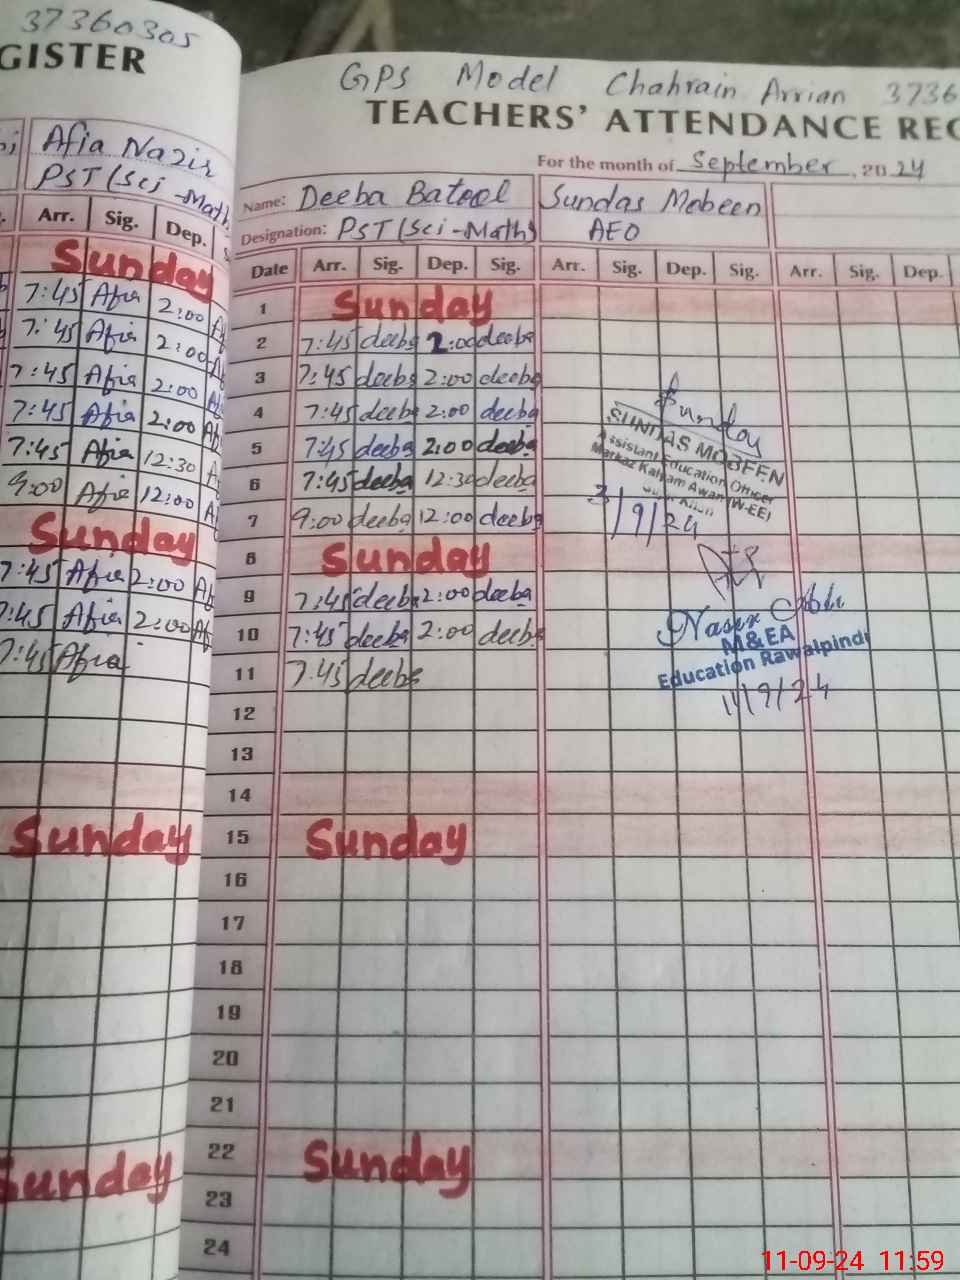 37360305
GISTER
Afia Nazir
PST (Sci-Math)
Arr. Sig. Dep.
Sunday
7:45 Afia 2:00
7:45 Afia 2:00
7:45 Afia 2:00
7:45 Afia 2:00
7:45 Afia 12:30
9:00 Afia 12:00
Sunday
7:45 Afia 2:00
7:45 Afia 2:00
7:45 Afia
Sunday
Sunday
GPS Model Chahrain Arrian 3736
TEACHERS' ATTENDANCE REG
For the month of September, 2024
Name: Deeba Batool Sundas Mobeen
Designation: PST (Sci-Math) AEO
Date Arr. Sig. Dep. Sig. Arr. Sig. Dep. Sig. Arr. Sig. Dep.
1 Sunday
2 7:45 deeba 2:00 deeba
3 7:45 deeba 2:00 deeba
4 7:45 deeba 2:00 deeba
5 7:45 deeba 2:00 deeba
6 7:45 deeba 12:30 deeba
7 9:00 deeba 12:00 deeba
8 Sunday
9 7:45 deeba 2:00 deeba
10 7:45 deeba 2:00 deeba
11 7:45 deeba
12
13
14
15 Sunday
16
17
18
19
20
21
22 Sunday
23
24
SUNDAS MOBEEN
Assistant Education Officer
Markaz Kalyam Awan (W-EE)
3/9/24
M&EA
Education Rawalpindi
11/9/24
11-09-24 11:59